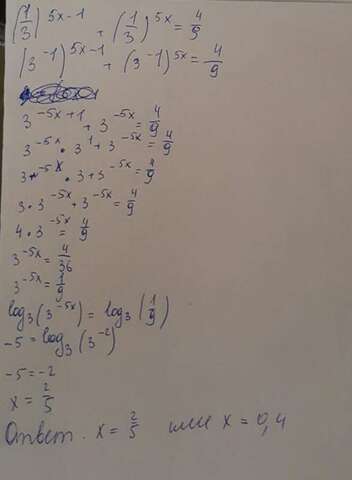 (1/3)^5x-1 + (1/3)^5x = 4/9
(3^-1)^5x-1 + (3^-1)^5x = 4/9
3^-5x+1 + 3^-5x = 4/9
3^-5x · 3^1 + 3^-5x = 4/9
3^-5x · 3 + 3^-5x = 4/9
3 · 3^-5x + 3^-5x = 4/9
4 · 3^-5x = 4/9
3^-5x = 4/36
3^-5x = 1/9
log₃(3^-5x) = log₃(1/9)
-5 = log₃(3^-2)
-5 = -2
x = 2/5
Ответ. x = 2/5 или x = 0,4